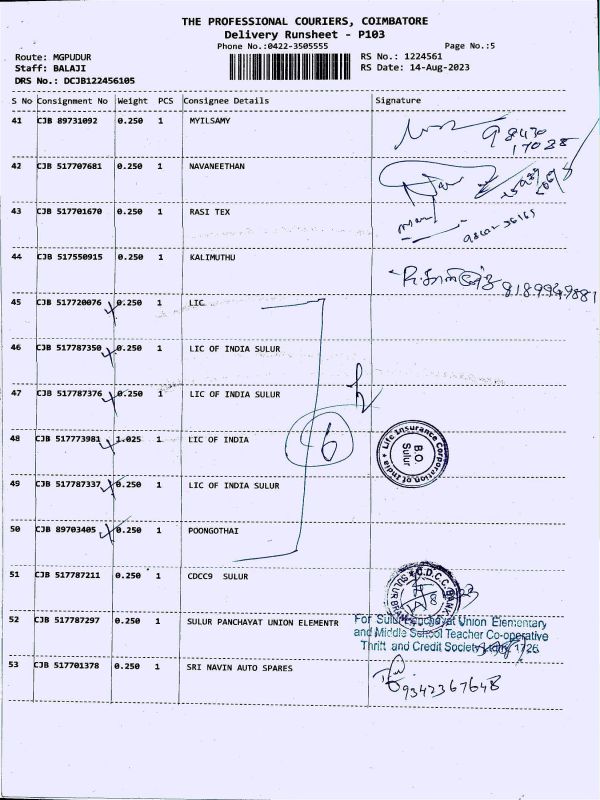 THE PROFESSIONAL COURIERS, COIMBATORE
Delivery Runsheet - P103
Phone No.:0422-3505555 Page No.:5
Route: MGPUDUR RS No.: 1224561
Staff: BALAJI RS Date: 14-Aug-2023
DRS No.: DCJB122456105
S No Consignment No Weight PCS Consignee Details Signature
41 CJB 89731092 0.250 1 MYILSAMY
98430
17028
42 CJB 517707681 0.250 1 NAVANEETHAN
43 CJB 517701670 0.250 1 RASI TEX
44 CJB 517550915 0.250 1 KALIMUTHU
45 CJB 517720076 0.250 1 LIC
46 CJB 517787350 0.250 1 LIC OF INDIA SULUR
47 CJB 517787376 0.250 1 LIC OF INDIA SULUR
48 CJB 517773981 1.025 1 LIC OF INDIA
6
Life Insurance Corporation of India
B.O
Sulur
49 CJB 517787337 0.250 1 LIC OF INDIA SULUR
50 CJB 89703405 0.250 1 POONGOTHAI
51 CJB 517787211 0.250 1 CDCC9 SULUR
52 CJB 517787297 0.250 1 SULUR PANCHAYAT UNION ELEMENTR
For Sulur Panchayat Union Elementary
and Middle School Teacher Co-operative
Thrift and Credit Society
53 CJB 517701378 0.250 1 SRI NAVIN AUTO SPARES
9342367648